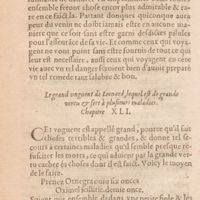 ensemble seront chose encor plus admirable & rare
en ce fait là. Partant doncques quiconque aura
peur du venin ne doibt iamais estre en aucune maniere
que ce soit sans estre garni desdictes pilules
pour l'asseurãce de sa vie. Et comme ceux qui voyagent
ne vont point sans estre fournis de tout ce qui
leur est necessaire, aussi ceux qui voyagent en ce val
avec un tel danger seroient bien d'avoir empoigné
un tel remede tant salubre & bon.
Le grand unguent de Leonard, lequel est de grande
vertu & sert à plusieurs maladies.
Chapitre XLI.
CEt unguent est appellé grand, pource qu'il fait
choses terribles & grandes, & donne tel secours
à certaines maladies qu'il semble presque
ressusciter les morts, ce qui advient par la grande vertu
cachee és choses dont il est faict. Voicy le moyen
de le faire.
Prenez Omega
once.
Soient mis ensemble dedans une petite fiole & les